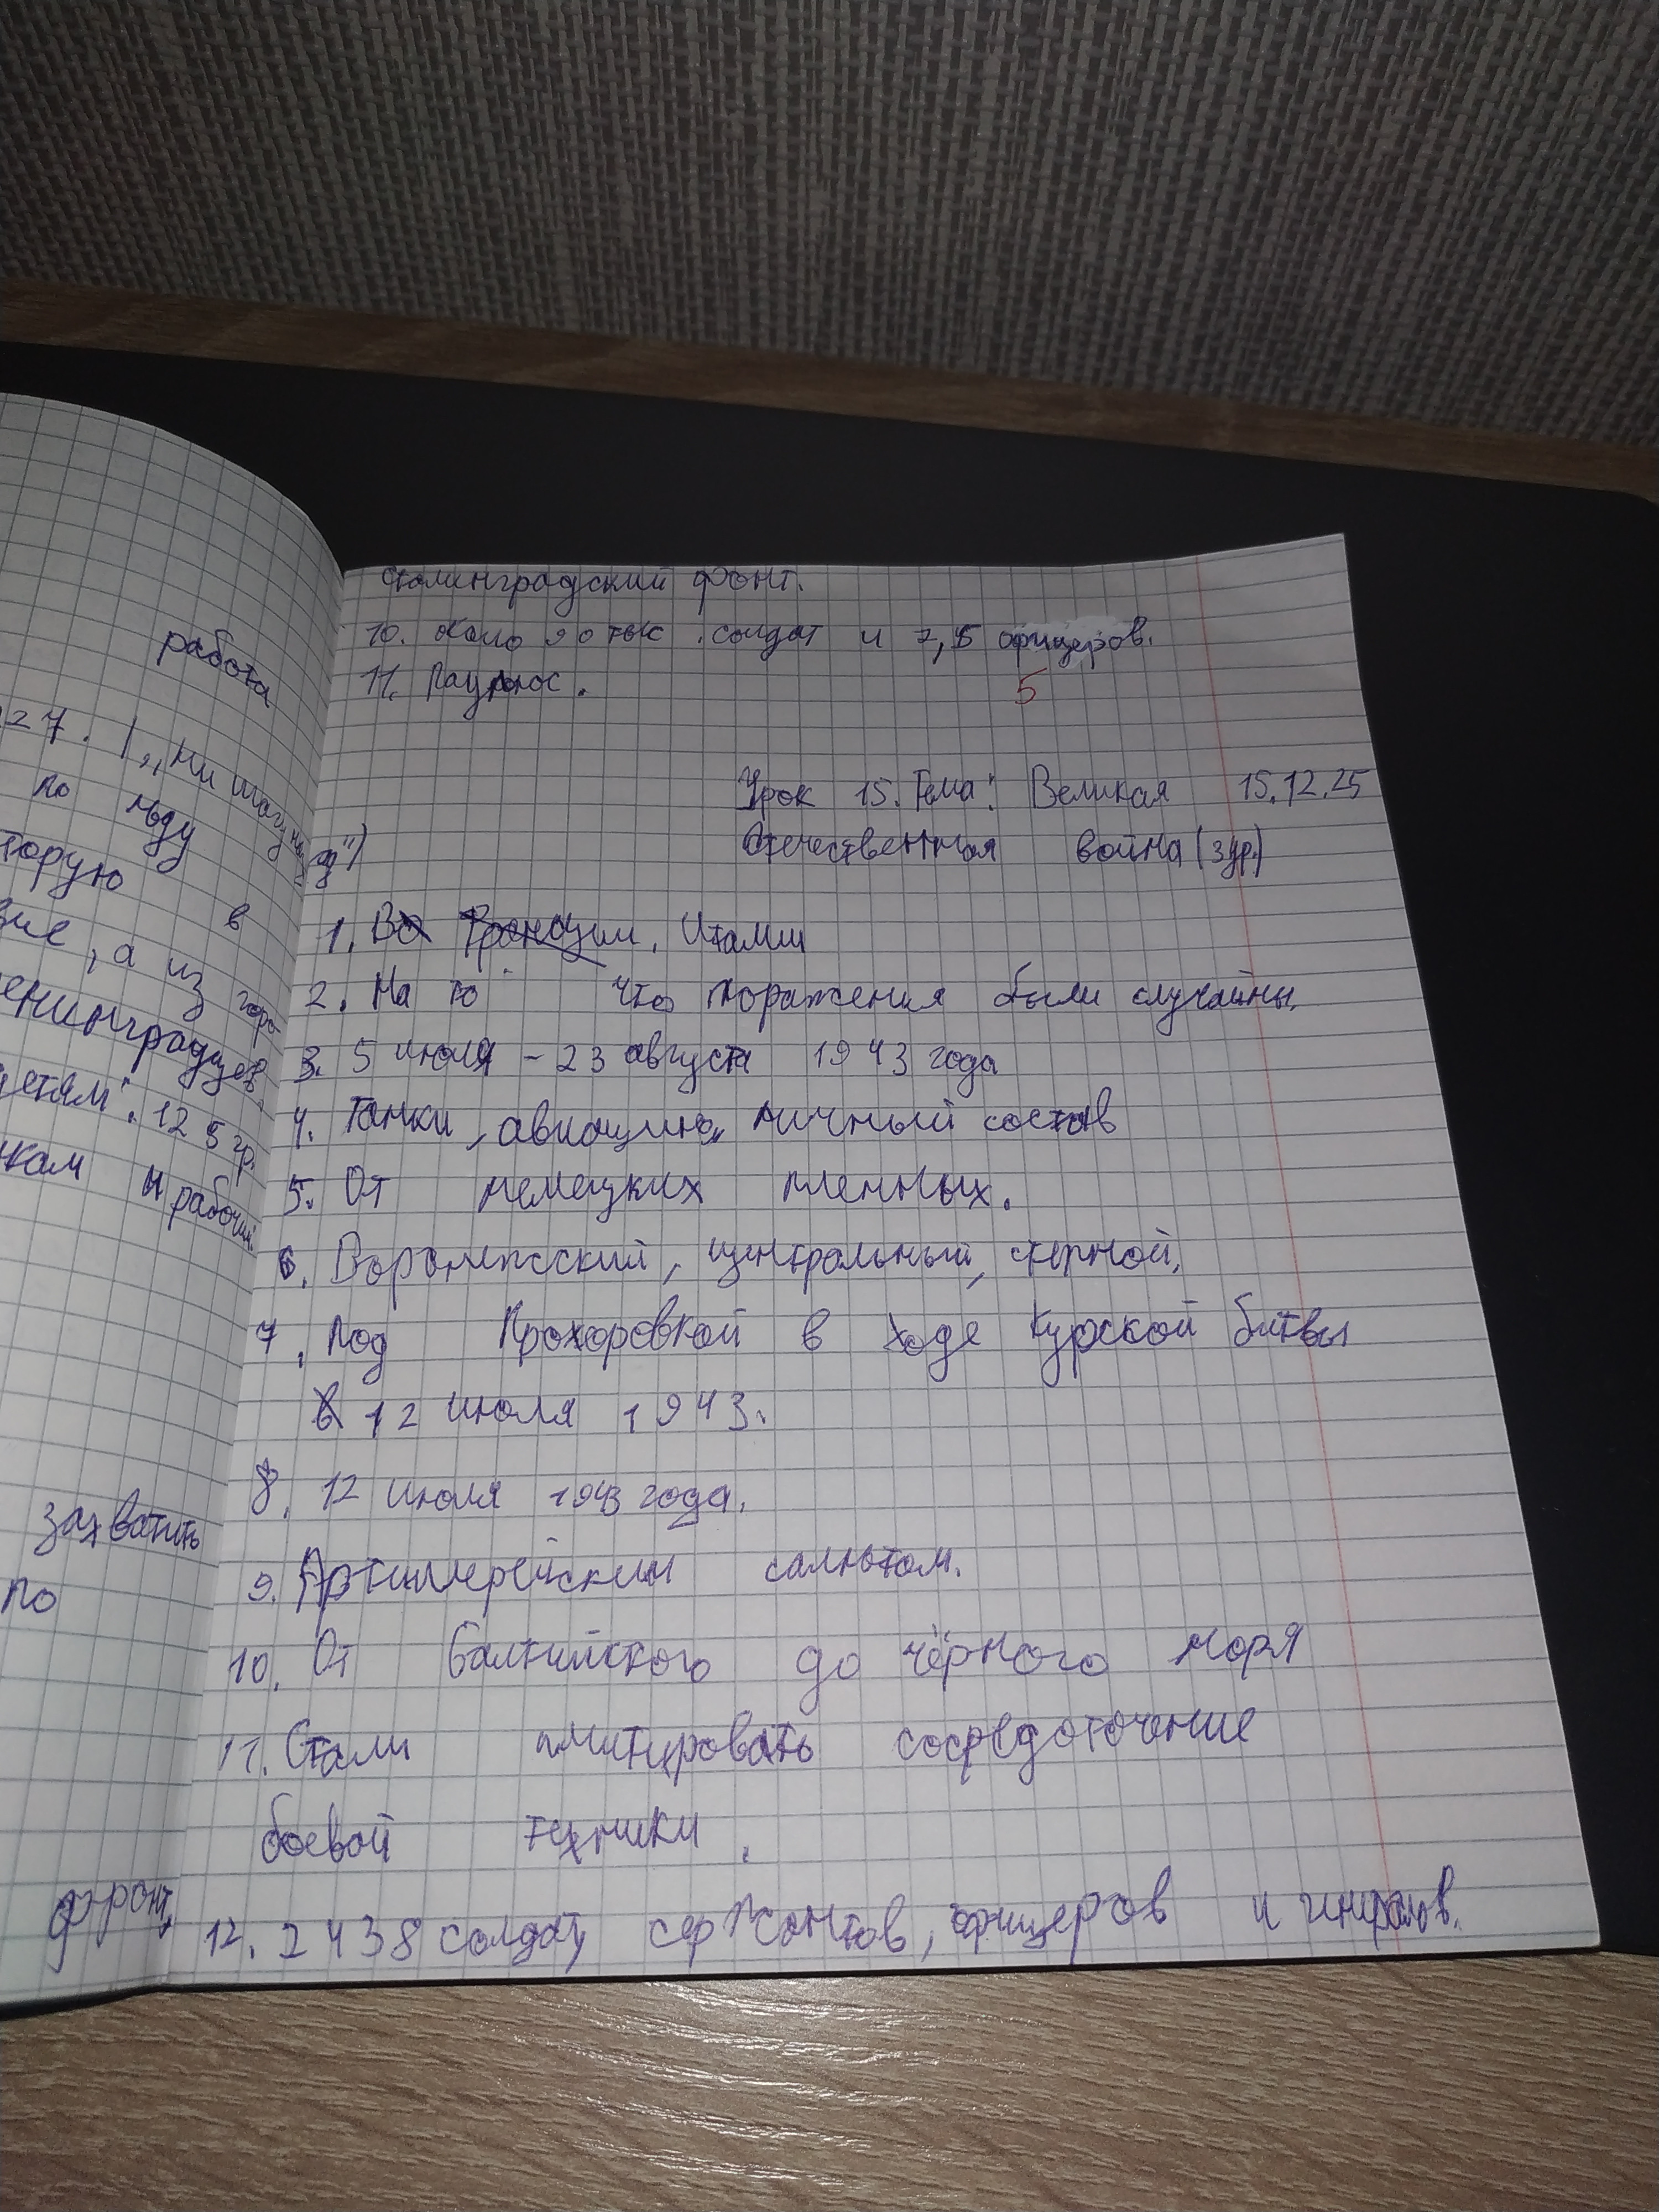 работа
27. („Ни шагу наз
ад")
по льду
торую в
вие, а из горо
енинградцев
детям". 125 гр.
нкам и рабочим.
захватить
по
фронт,
Сталинградский фронт.
10. около 90 тыс. солдат и 2,5 офицеров.
11. Паулюс.
5
Урок 15. Тема: Великая 15.12.25
Отечественная война (3 ур.)
1. Во Франции. Италии
2. На то что поражения были случайны.
3. 5 июля - 23 августа 1943 года
4. Танки, авиацию, личный состав
5. От немецких пленных.
6. Воронежский, центральный, степной.
7. Под Прохоровкой в ходе Курской битвы
в 12 июля 1943.
8. 12 июля 1943 года.
9. Артиллерейским салютом.
10. От балтийского до чёрного моря
11. Стали имитировать сосредоточение
боевой техники.
12. 2438 солдат, сержантов, офицеров и гинералов.